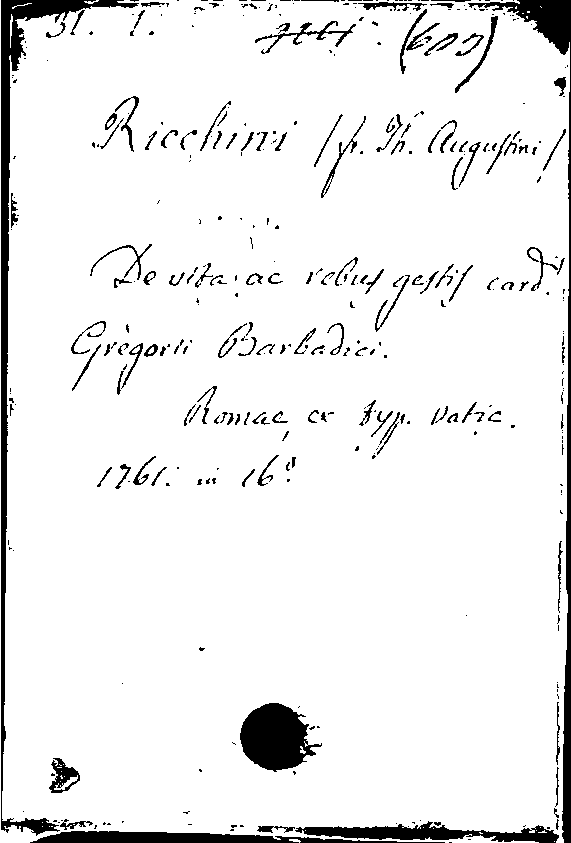 31. 1. (600)
Ricchini /fr. Th. Augustini/
De vita ac rebus gestis card.
Gregorii Barbadici.
Romae, ex typ. vatic.
1761. in 16°.